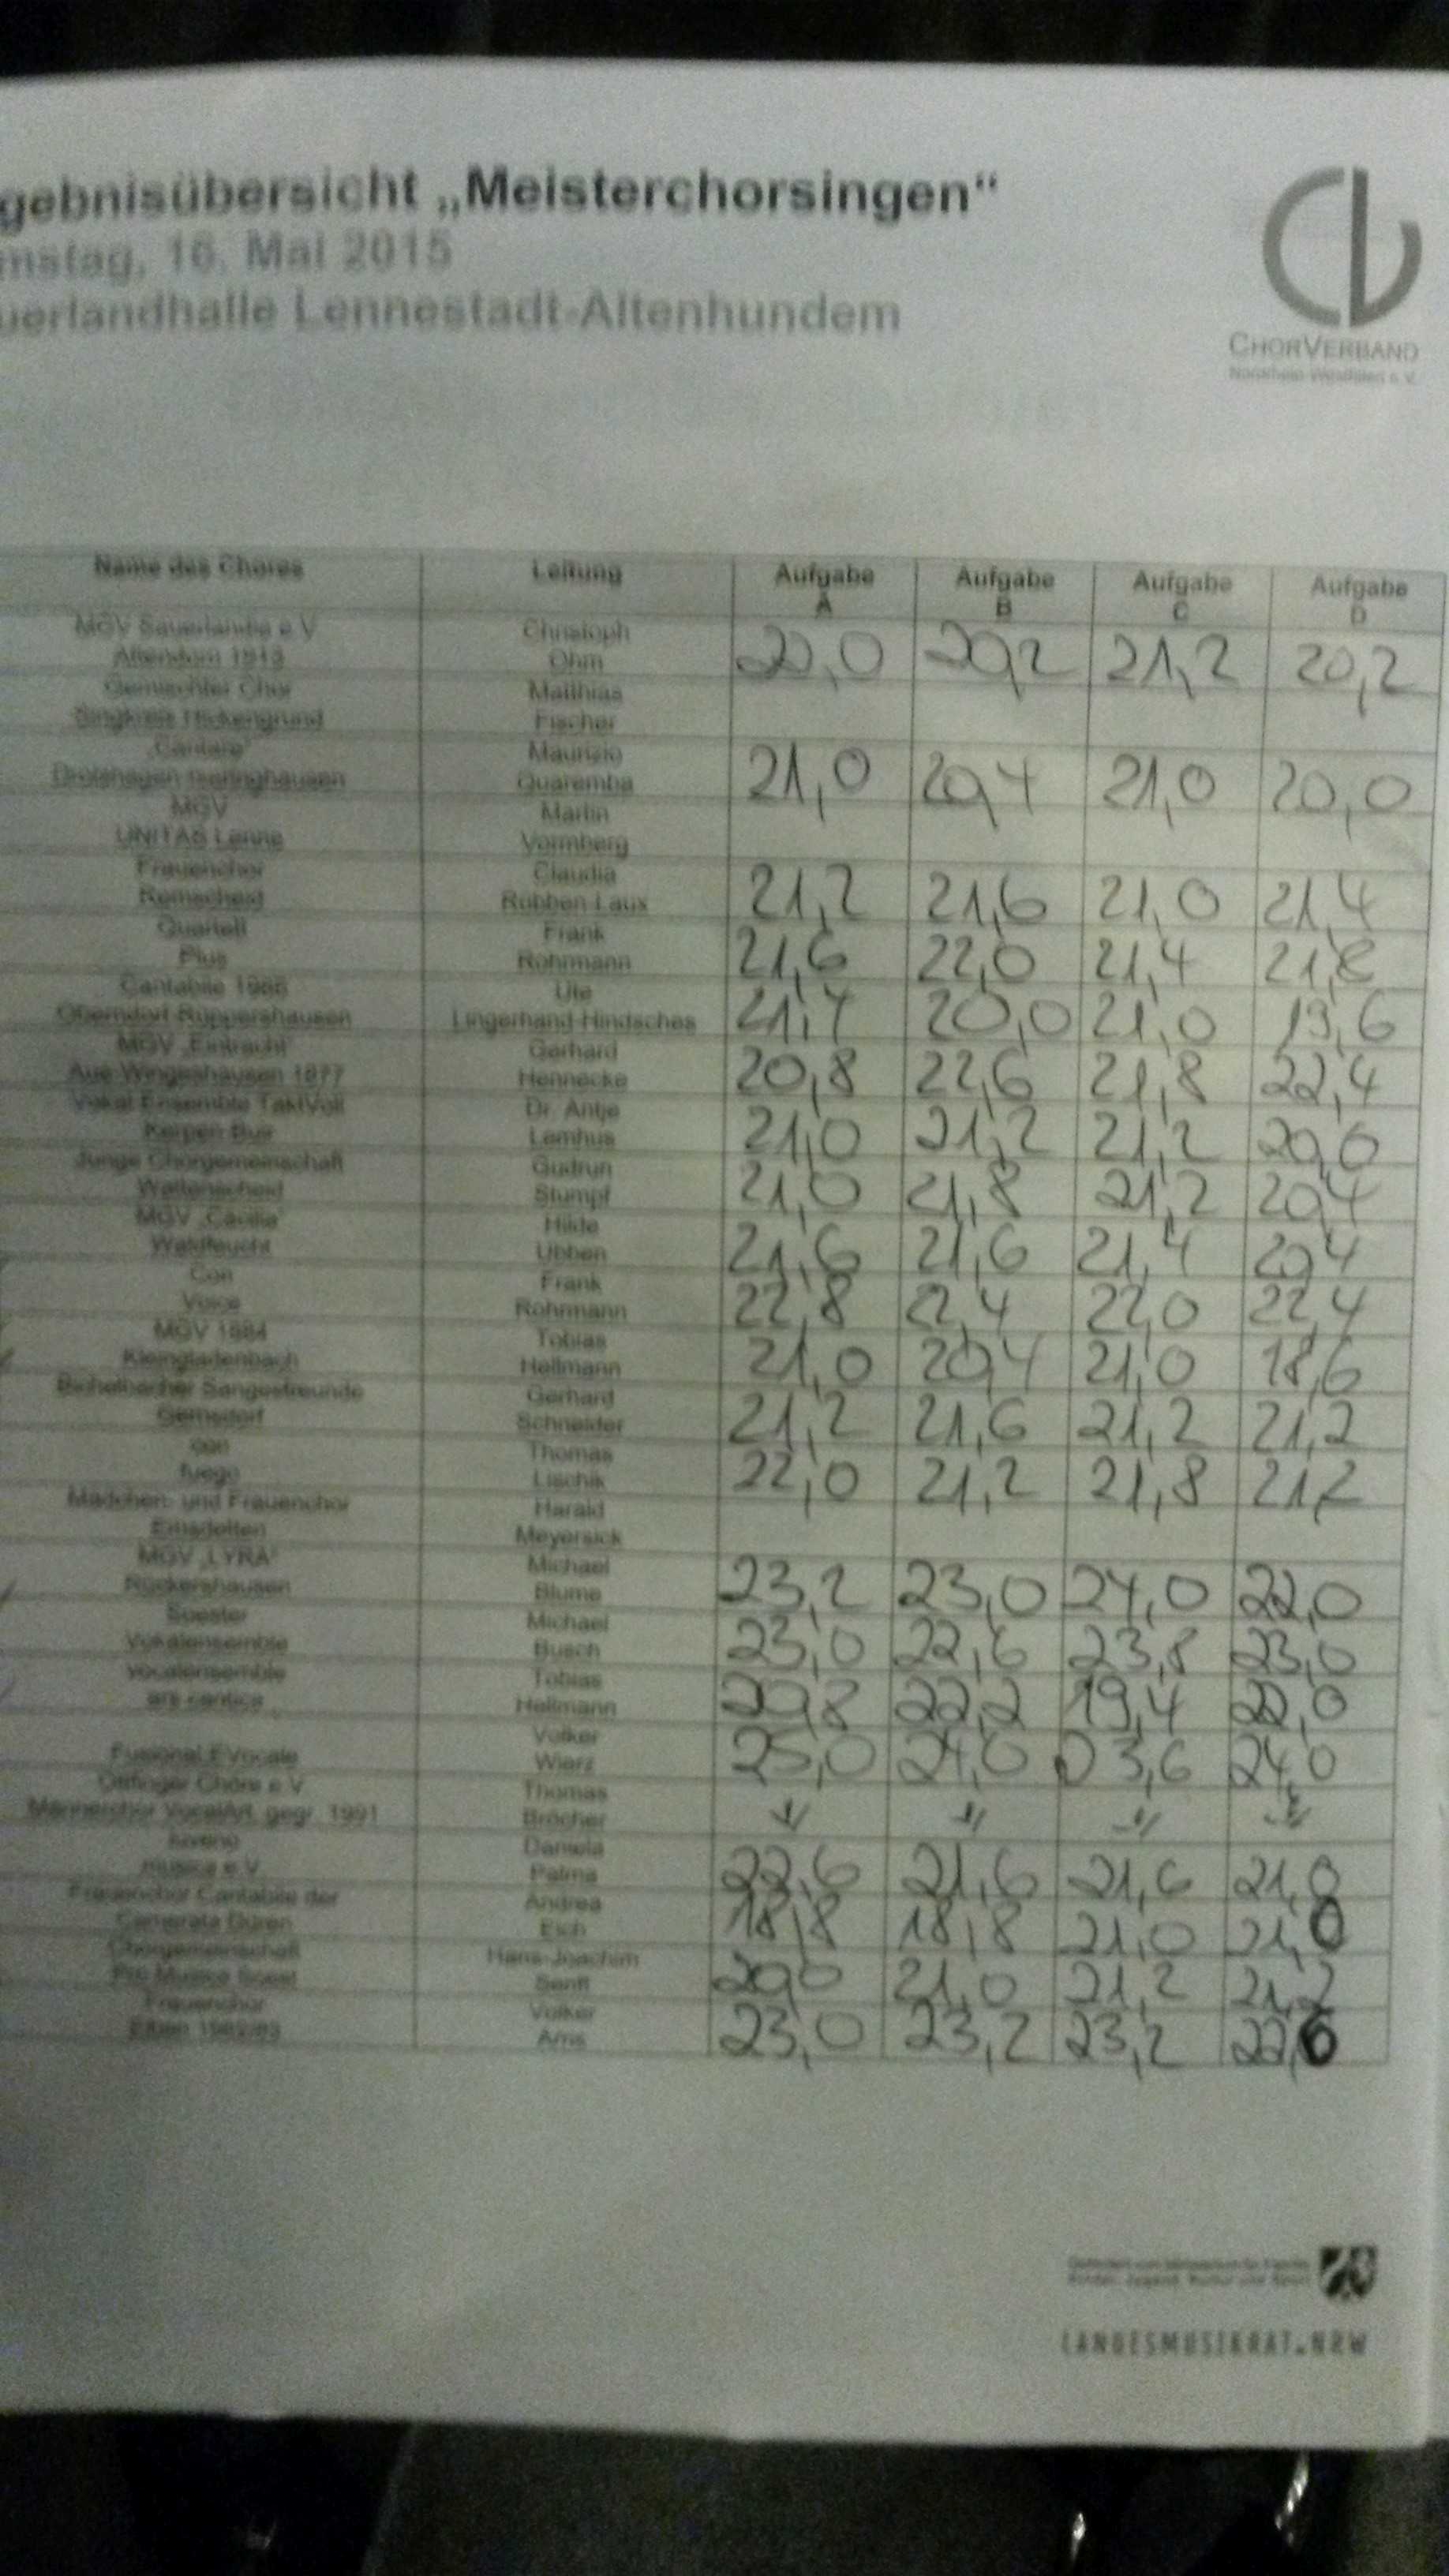 gebnisübersicht „Meisterchorsingen“
mstag, 16. Mai 2015
uerlandhalle Lennestadt-Altenhundem
CHORVERBAND
Nordrhein-Westfalen e.V.
Name des Chores Leitung Aufgabe A Aufgabe B Aufgabe C Aufgabe D
MGV Sauerlandia e.V. Christoph
Attendorn 1913 Ohm 20,0 20,2 21,2 20,2
Gemischter Chor Matthias
Singkreis Hickengrund Fischer
„Cantare“ Maurizio
Drolshagen-Iseringhausen Quaremba 21,0 20,4 21,0 20,0
MGV Martin
UNITAS Lenne Vormberg
Frauenchor Claudia
Remscheid Rübben-Laux 21,2 21,6 21,0 21,4
Quartett Frank
Plus Rohrmann 21,6 22,0 21,4 21,8
Cantabile 1986 Ute
Oberndorf-Rüppershausen Lingerhand-Hindsches 21,4 20,0 21,0 19,6
MGV „Eintracht“ Gerhard
Aue-Wingeshausen 1877 Hennecke 20,8 22,6 21,8 22,4
Vokal Ensemble TaktVoll Dr. Antje
Kerpen Lamhus 21,0 21,2 21,2 20,0
Junge Chorgemeinschaft Gudrun
Wattenscheid Stumpf 21,0 21,8 21,2 20,4
MGV „Cäcilia“ Hilde
Waldfeucht Ubben 21,6 21,6 21,4 20,4
Con Frank
Voice Rohrmann 22,8 22,4 22,0 22,4
MGV 1884 Tobias
Kleingladenbach Hellmann 21,0 20,4 21,0 18,6
Bichelbacher Sangesfreunde Gerhard
Gernsdorf Schneider 21,2 21,6 21,2 21,2
con Thomas
fuego Lischik 22,0 21,2 21,8 21,2
Mädchen- und Frauenchor Harald
Emsdetten Meyersick
MGV „LYRA“ Michael
Rückershausen Blume 23,2 23,0 24,0 22,0
Soester Michael
Vokalensemble Busch 23,0 22,6 23,8 23,0
Vocalensemble Tobias
ars cantica Hellmann 20,8 22,2 19,4 22,0
Volker
Fusional EVocale Wierz 25,0 24,0 23,6 24,0
Ottfinger Chöre e.V. Thomas
Männerchor VocalArt, gegr. 1991 Bröcher
Daniela
musica e.V. Palma 22,6 21,6 21,6 21,0
Frauenchor Cantabile der Andrea
Camerata Düren Eich 18,8 18,8 21,0 21,0
Chorgemeinschaft Hans-Joachim
Pro Musica Soest Senft 20,0 21,0 21,2 21,2
Frauenchor Volker
Arns 23,0 23,2 23,2 22,6
LANDESMUSIKRAT.NRW